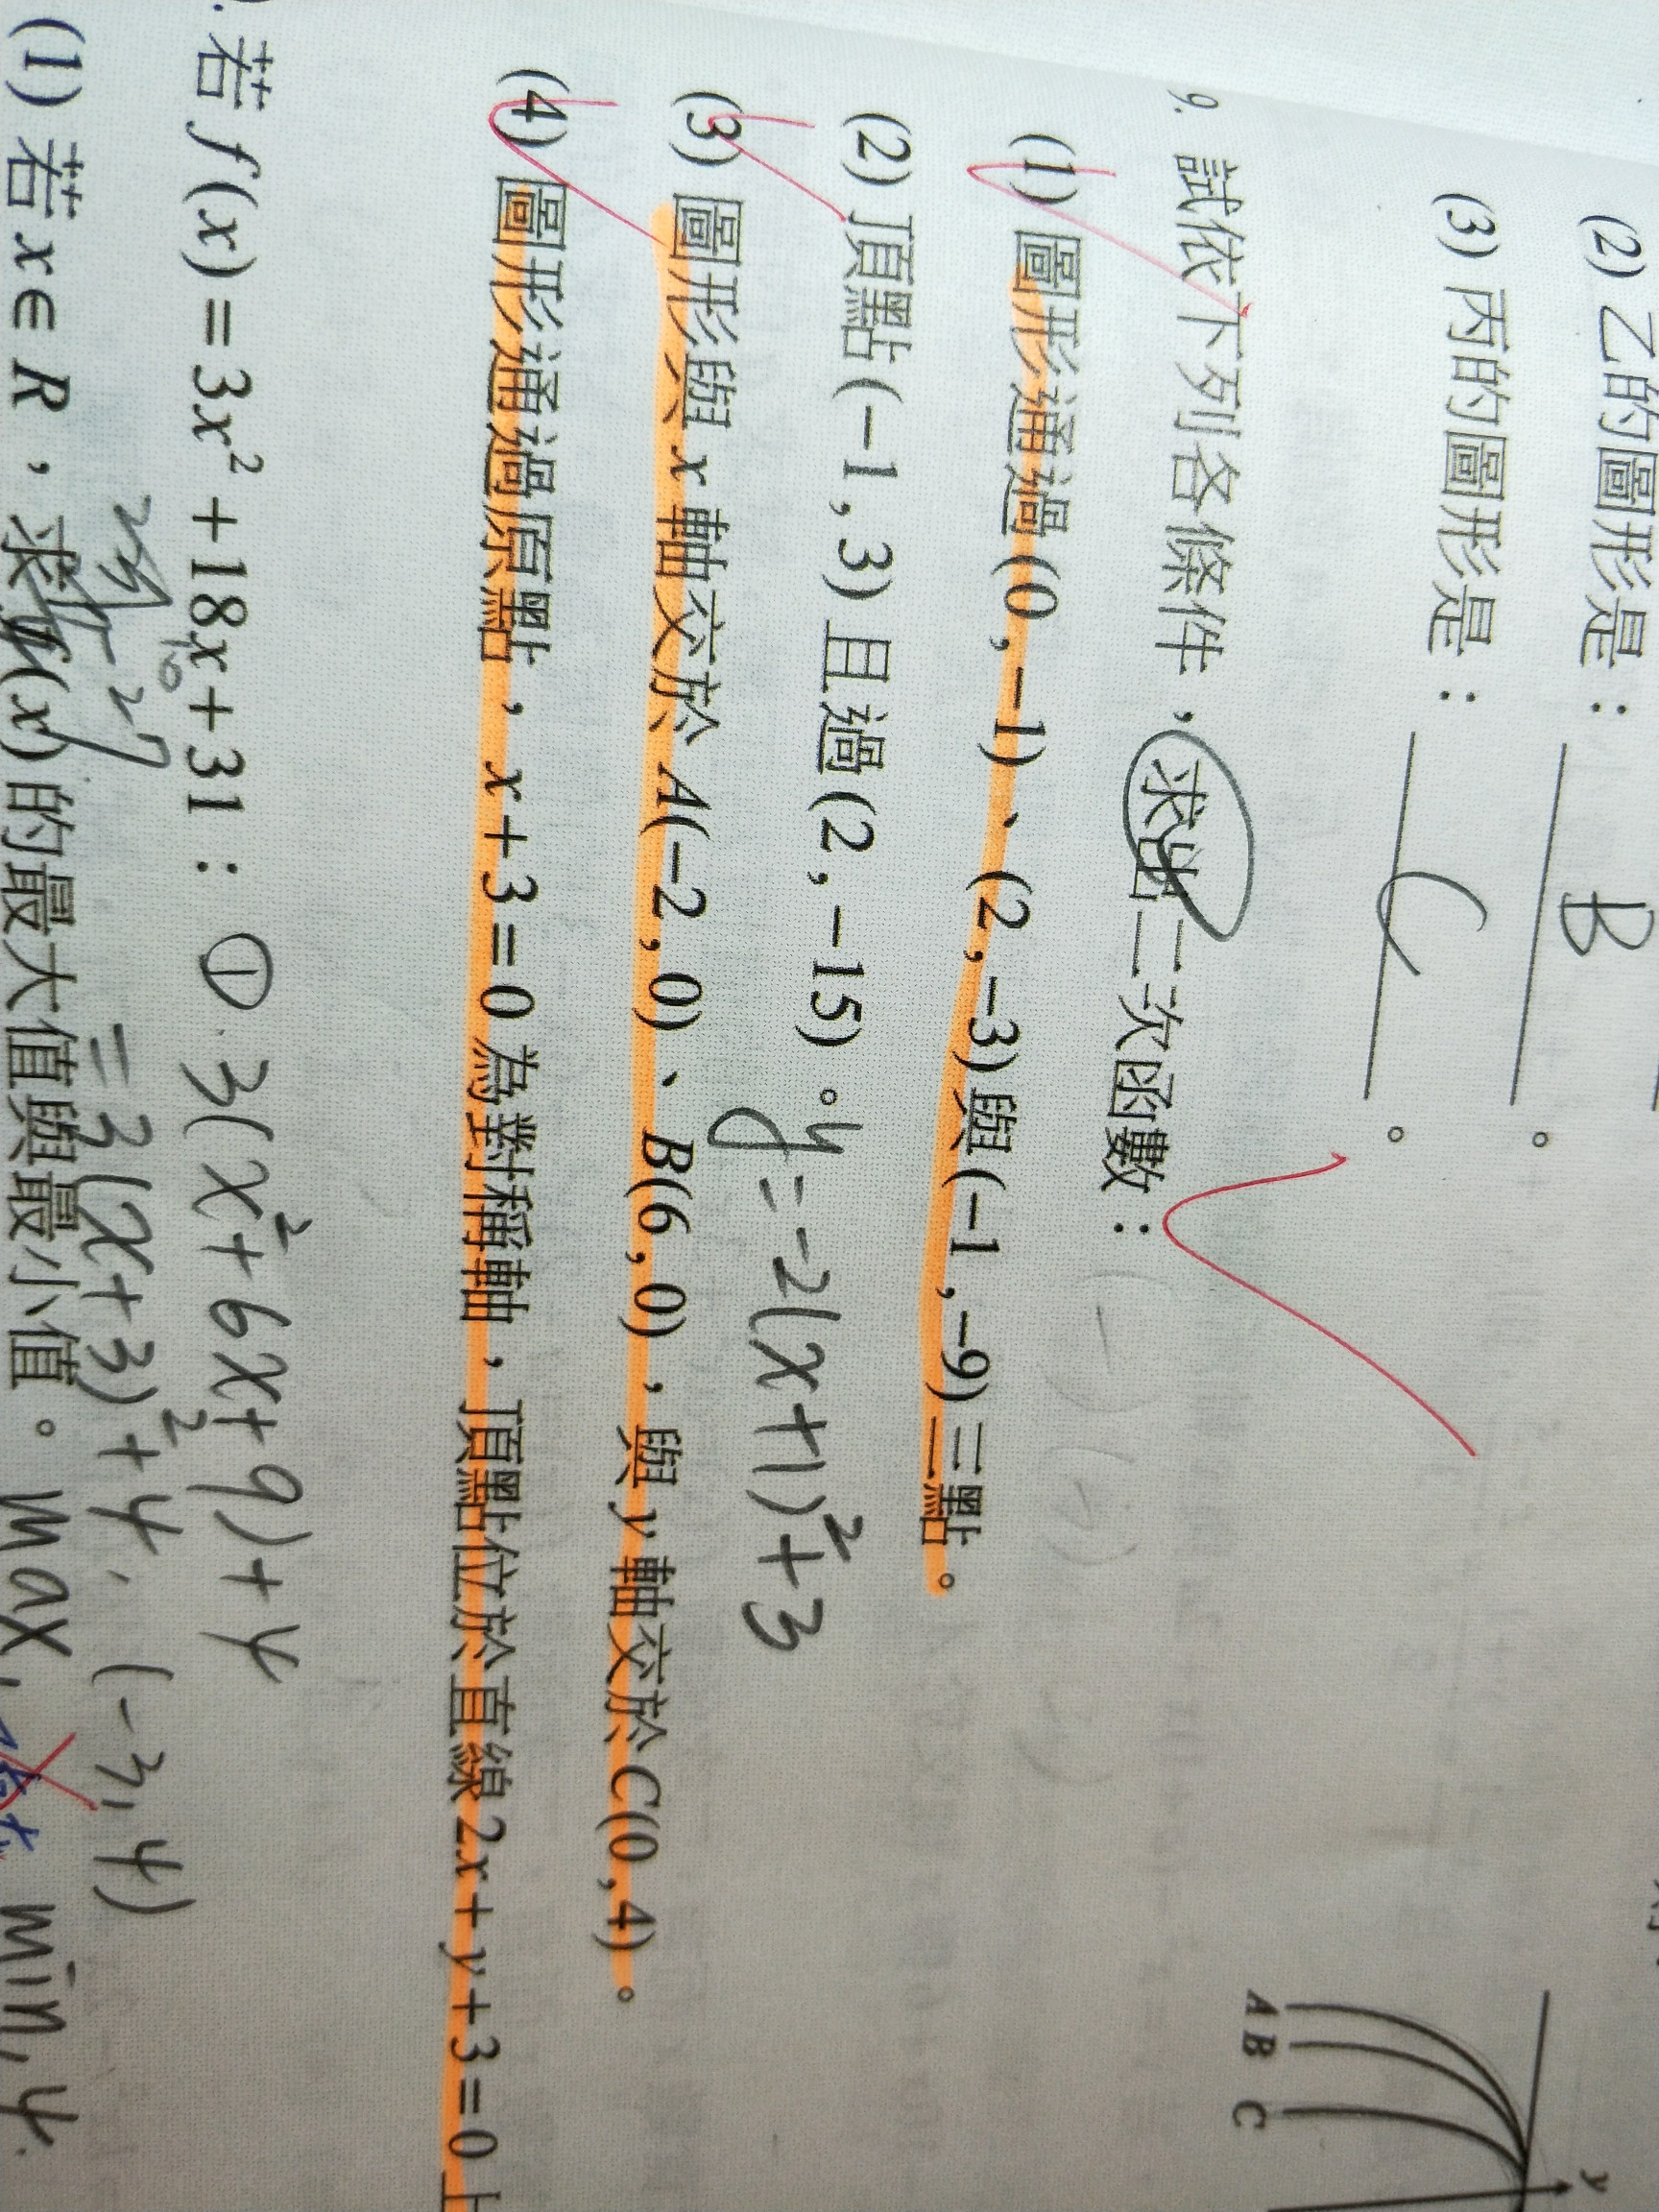 (2) 乙的圖形是：B。
(3) 丙的圖形是：C。
A
B
C
y
9. 試依下列各條件，求出二次函數：
(1) 圖形通過(0,-1)、(2,-3)與(-1,-9)三點。
(2) 頂點(-1,3)且過(2,-15)。y=-2(x+1)²+3
(3) 圖形與x軸交於A(-2,0)、B(6,0)，與y軸交於C(0,4)。
(4) 圖形通過原點，x+3=0為對稱軸，頂點位於直線2x+y+3=0上
. 若f(x)=3x²+18x+31：①. 3(x²+6x+9)+4
=3(x+3)²+4. (-3,4)
(1) 若x∈R，求f(x)的最大值與最小值。max, min, 4.